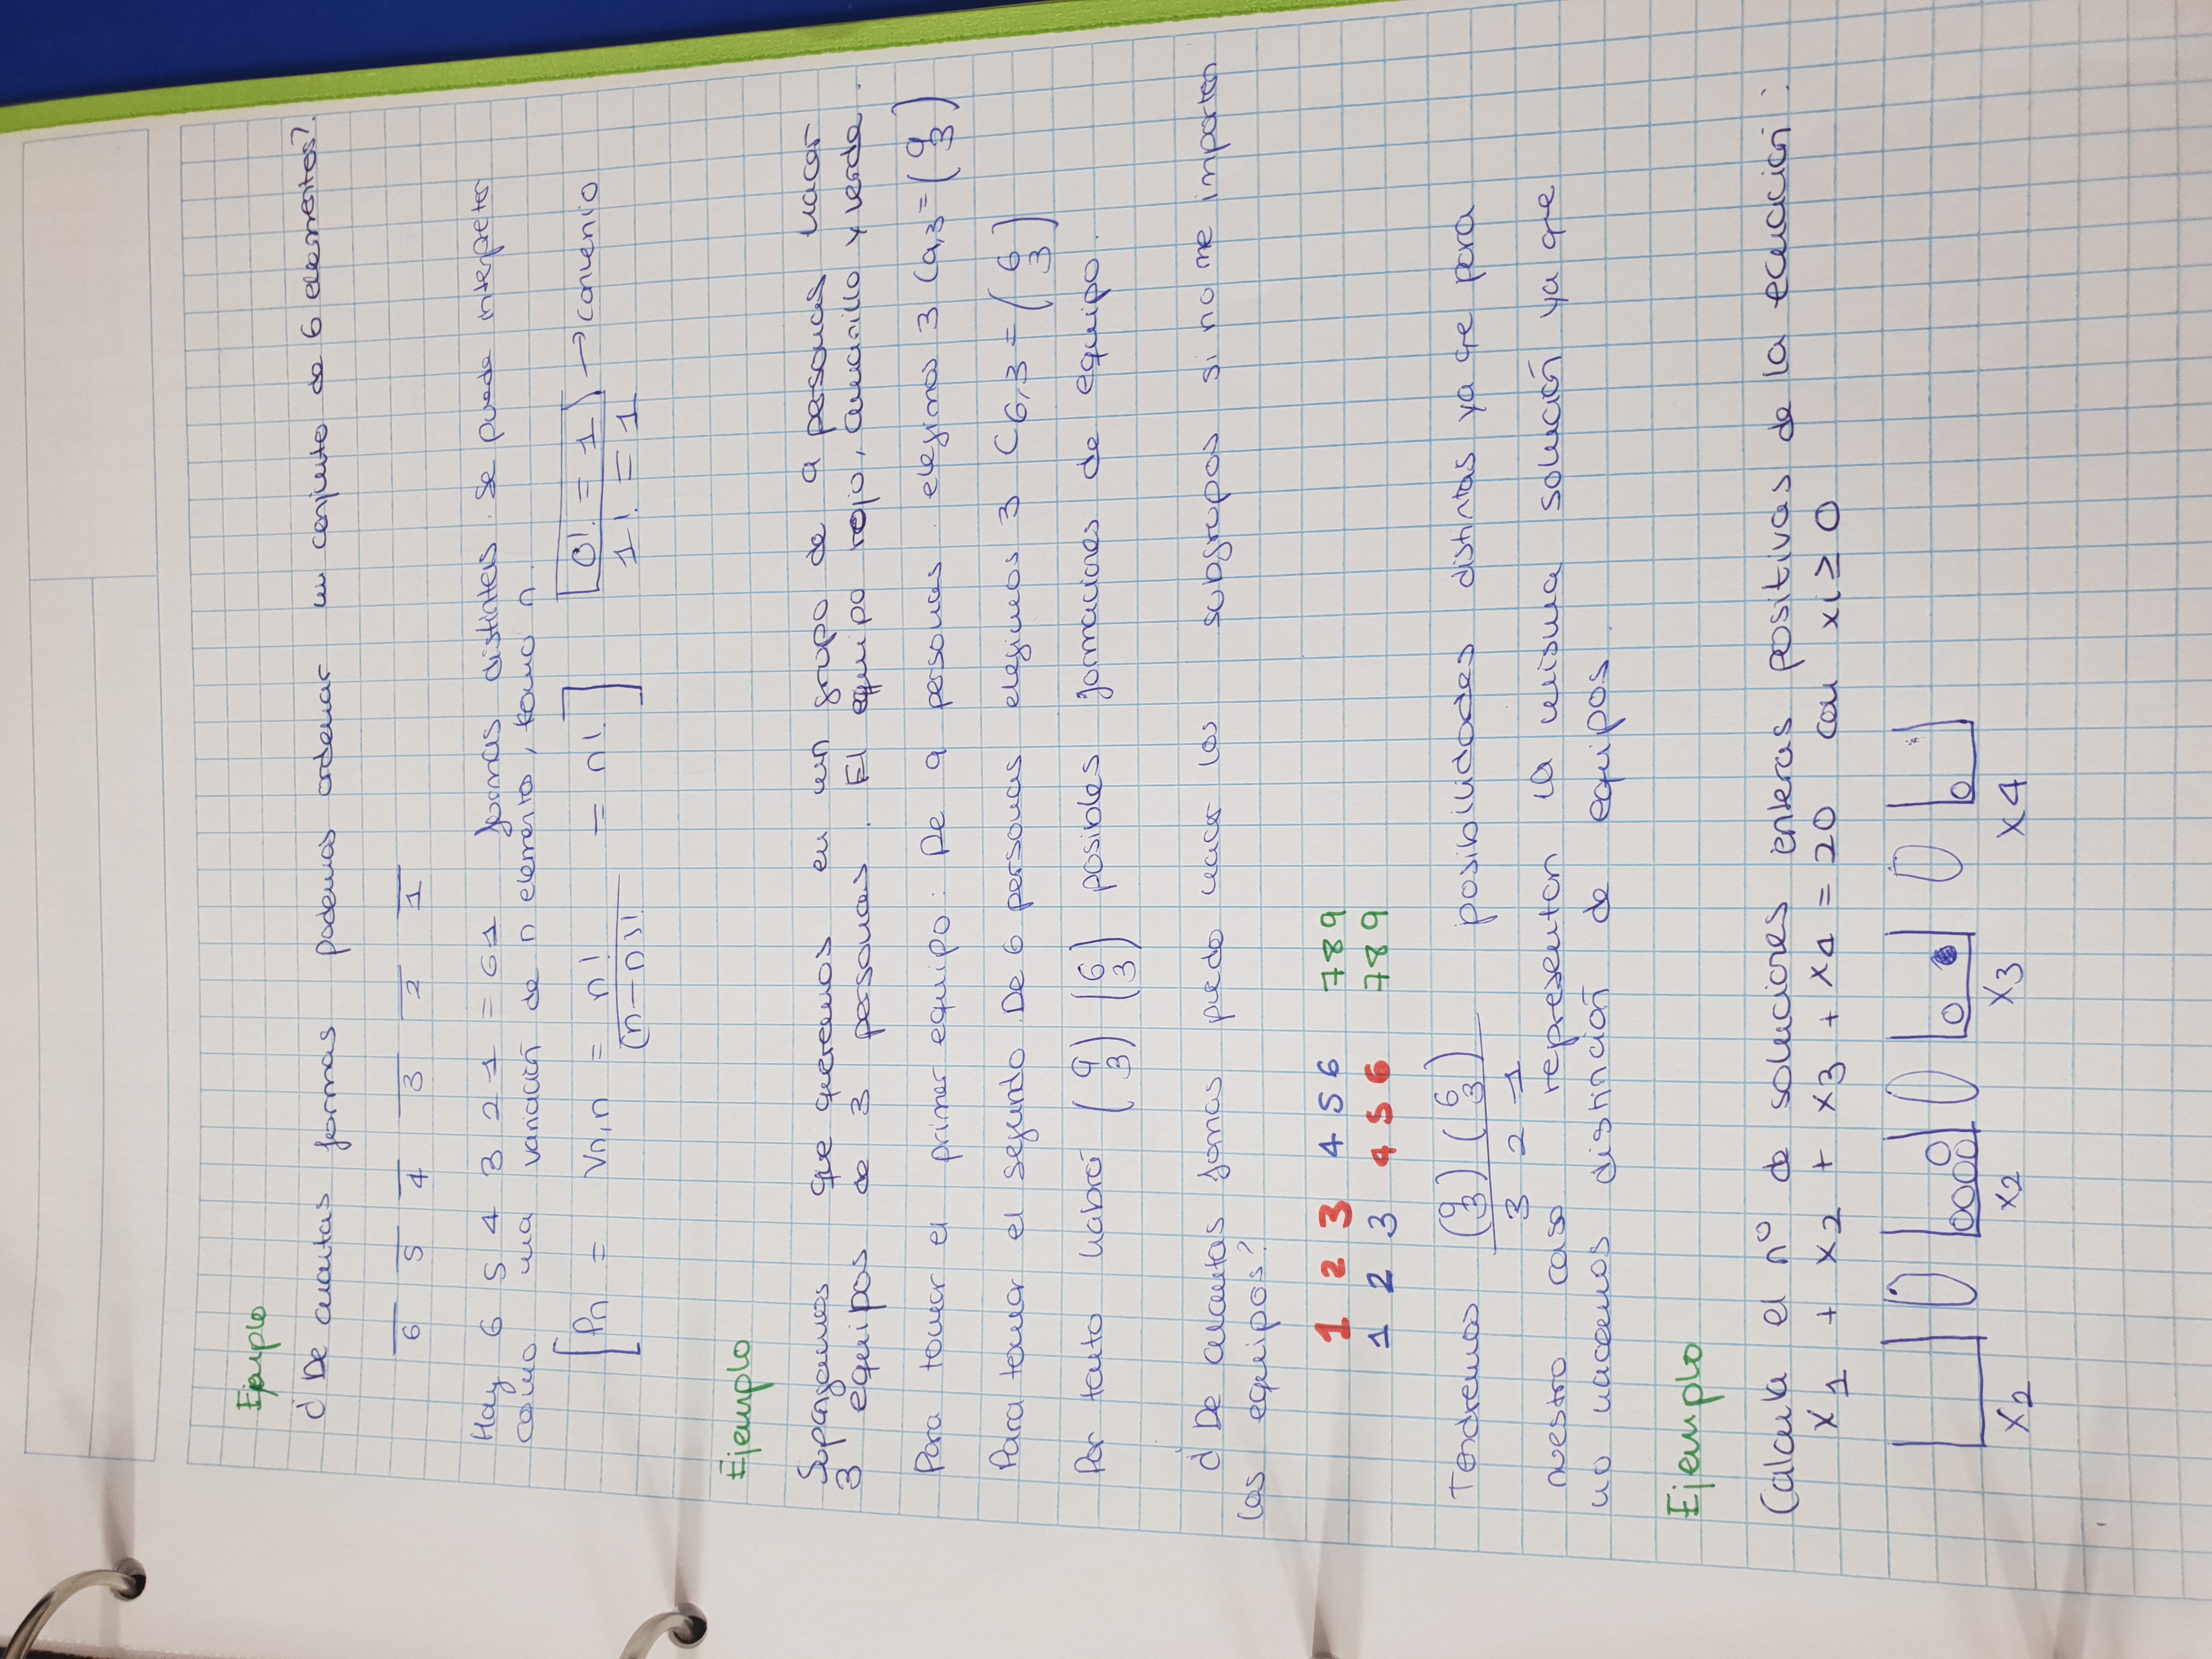 Ejemplo
¿ De cuantas formas podemos ordenar un conjunto de 6 elementos?.
6 5 4 3 2 1
Hay 6 5 4 3 2 1 = 61 formas distintas. se puede interpetar
como una variación de n elemento, tomo n.
[Pn = Vn,n = n!/(n-n)! = n!] [0! = 1) → convenio
1! = 1
Ejemplo
Supongamos que queremos en un grupo de 9 personas hacer
3 equipos de 3 personas. El equipo rojo, amarillo y verde.
Para tomar el primer equipo: De 9 personas elegimos 3 C9,3 = (9 3)
Para tomar el segundo. De 6 personas elegimos 3 C6,3 = (6 3)
Por tanto habrá (9 3) (6 3) posibles formaciones de equipo.
¿ De cuantas formas puedo hacer los subgrupos si no me importan
los equipos?
1 2 3 4 5 6 7 8 9
1 2 3 4 5 6 7 8 9
Tendremos (9 3) (6 3) / 3 2 1 posibilidades distintas ya que para
nuestro caso representan la misma solución ya que
no hacemos distinción de equipos.
Ejemplo
Calcula el nº de soluciones enteras positivas de la ecuación:
x1 + x2 + x3 + x4 = 20 con xi ≥ 0
x2 x2 x3 x4